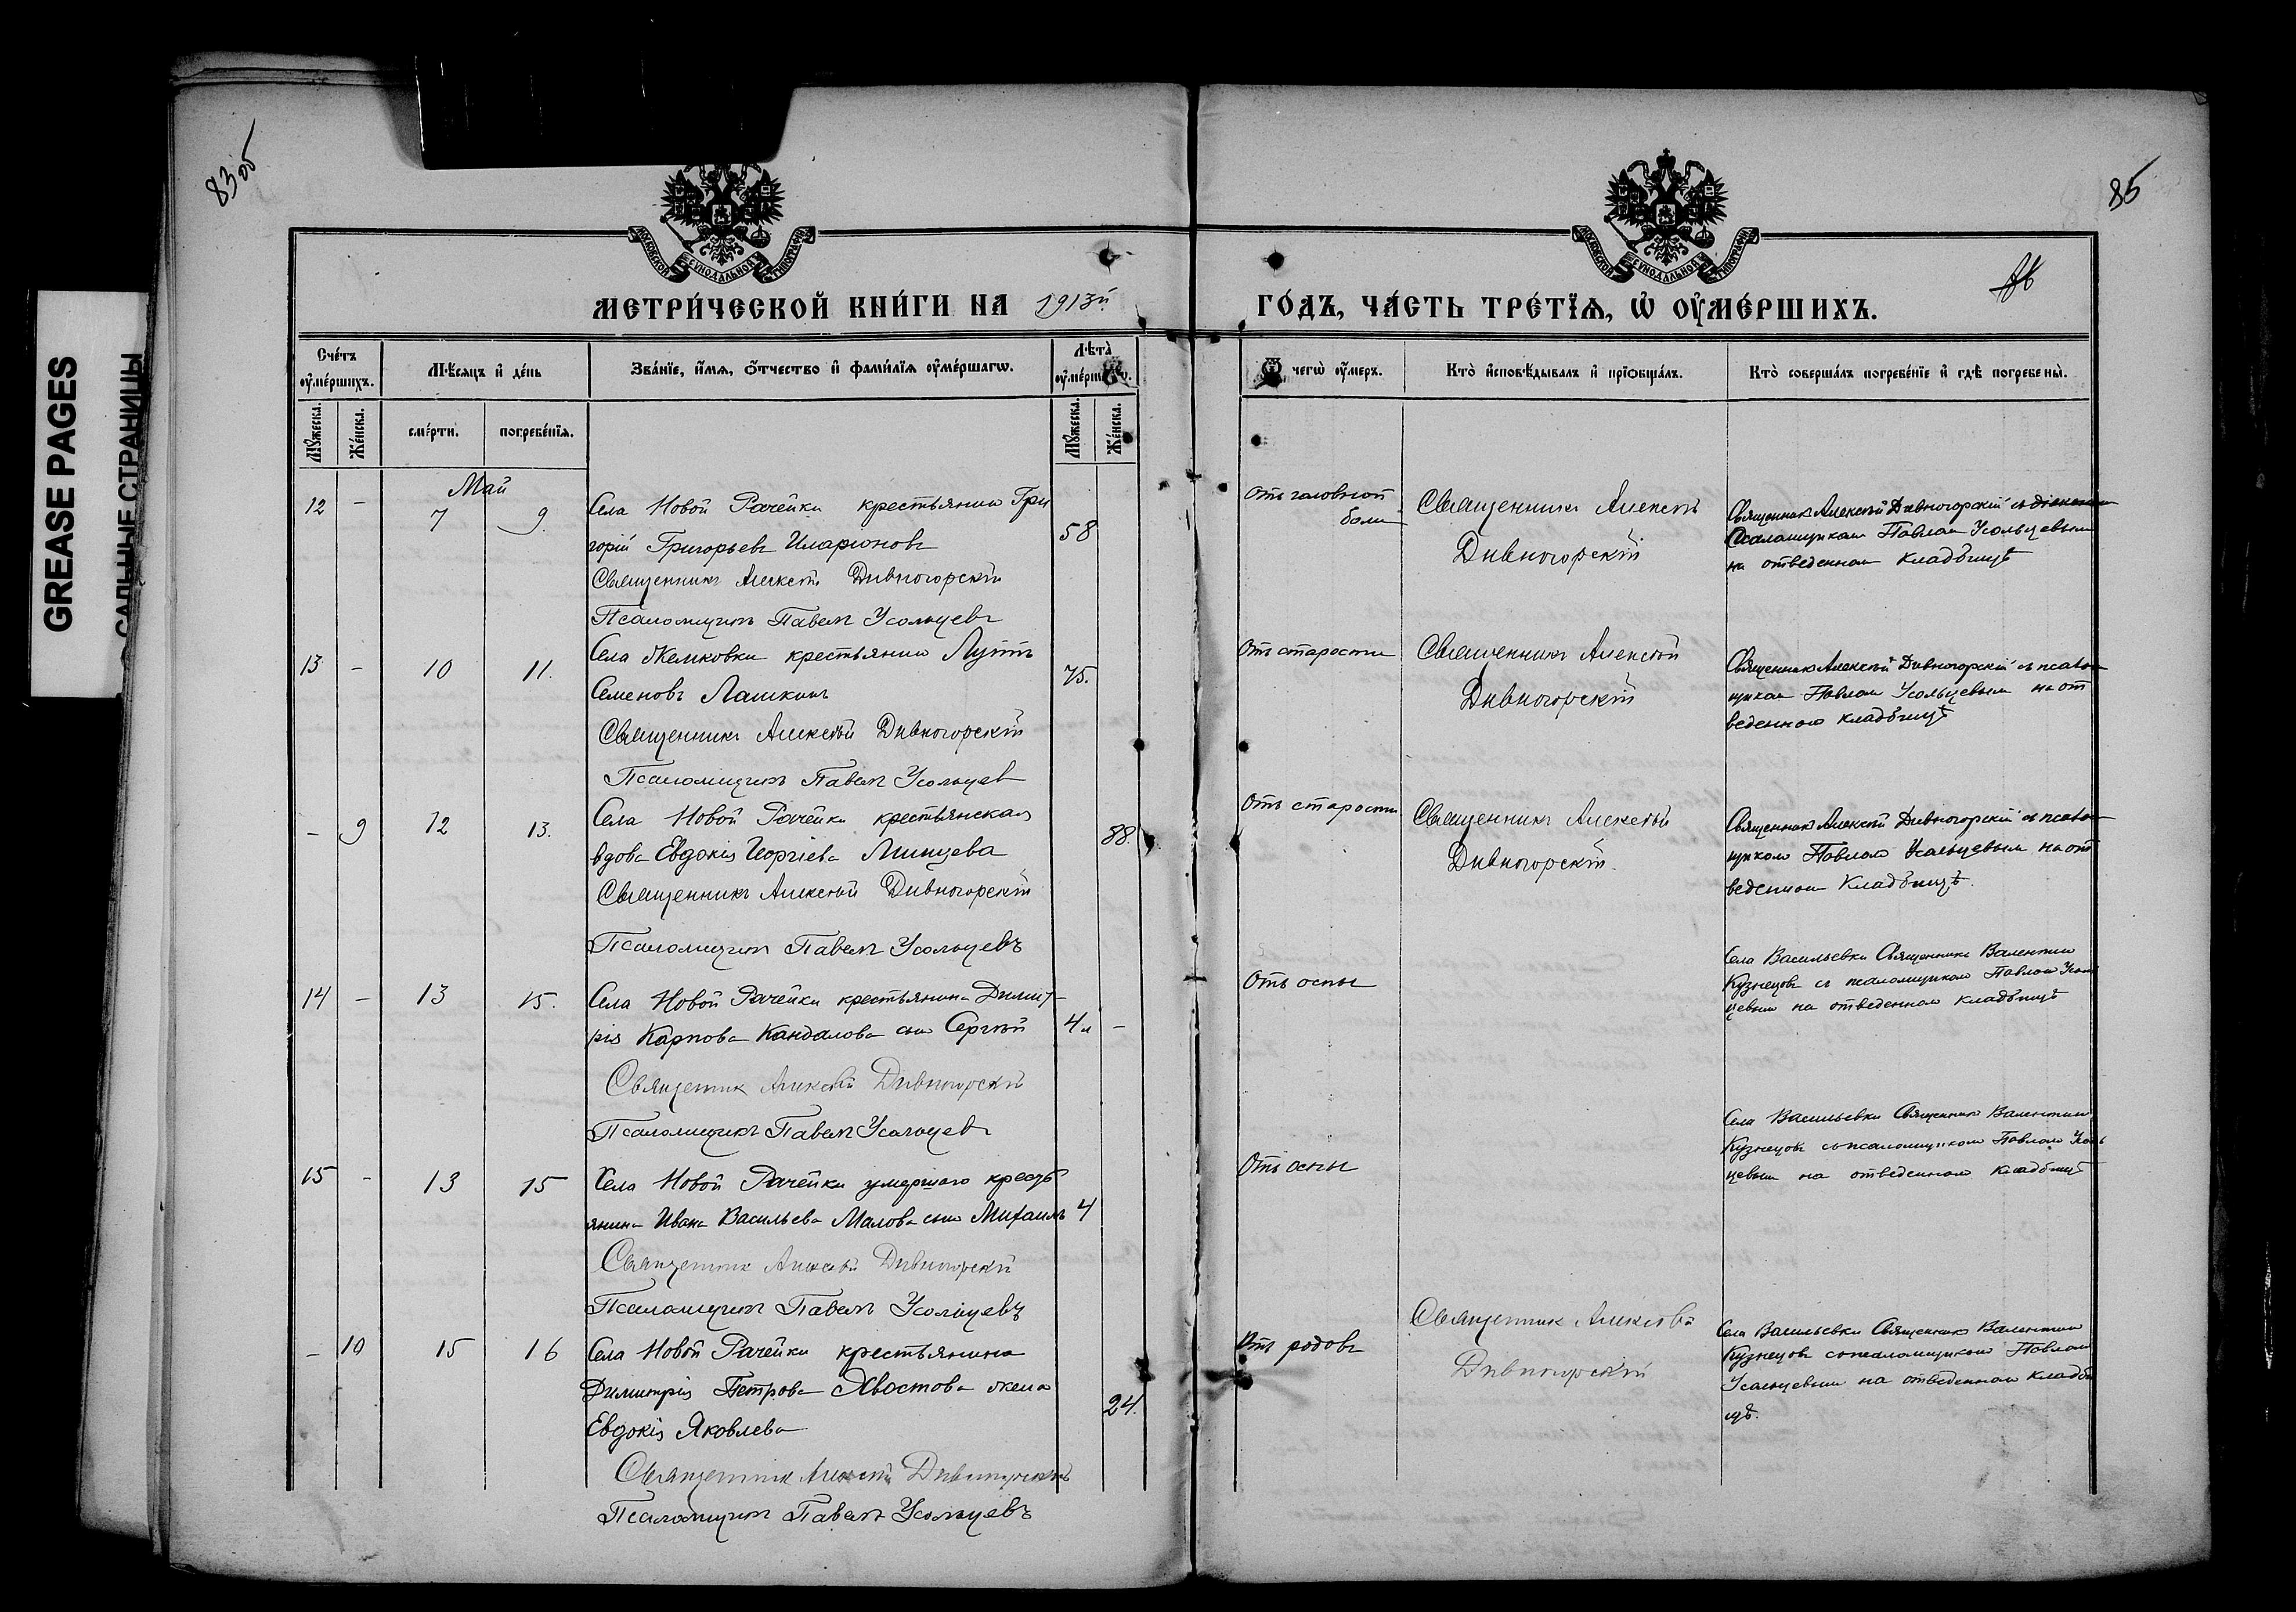 83 об
85
GREASE PAGES
САЛЬНЫЕ СТРАНИЦЫ
МОСКОВСКОЙ СѴНОДАЛЬНОЙ ТИПОГРАФІИ
МОСКОВСКОЙ СѴНОДАЛЬНОЙ ТИПОГРАФІИ
МЕТРИ́ЧЕСКОЙ КНИ́ГИ НА 1913й ГО́ДЪ, ЧА́СТЬ ТРЕ́ТЇѦ, Ѡ҆ ОУ҆МЕ́РШИХЪ.
Сче́тъ оу҆ме́ршихъ.
Мѣ́сѧцъ и҆ де́нь
Зва́нїе, и҆́мѧ, ѻ҆́тчество и҆ фами́лїѧ оу҆ме́ршагѡ.
Лѣ̀та̀ оу҆ме́ршагѡ.
Ѿ чегѡ̀ оу҆́меръ.
Кто̀ и҆сповѣ́дывалъ и҆ прїѡбща́лъ.
Кто̀ соверша́лъ погребе́нїе и҆ гдѣ̀ погребены̀.
Мꙋ́жеска.
Же́нска.
сме́рти.
погребе́нїѧ.
Мꙋ́жеска.
Же́нска.
Май
12 - 7 9. Села Новой Рачейки крестьянинъ Гри
горій Григорьевъ Иларіоновъ 58
Священникъ Алексій Дивногорскій
Псаломщикъ Павелъ Усольцевъ
Отъ головной
боли
Священникъ Алексѣй
Дивногорскій
Священникъ Алексѣй Дивногорскій съ діакономъ
Псаломщикомъ Павломъ Усольцевымъ
на отведенномъ кладбищѣ
13 - 10 11. Села крестьянинъ
Семеновъ Лашкинъ 75.
Священникъ Алексѣй Дивногорскій
Псаломщикъ Павелъ Усольцев
Отъ старости
Священникъ Алексѣй
Дивногорскій
Священникъ Алексѣй Дивногорскій съ псалом
щикомъ Павломъ Усольцевымъ на от
веденномъ кладбищѣ
- 9 12 13. Села Новой Рачейки крестьянская
вдова Евдокія Георгіева 88.
Священникъ Алексѣй Дивногорскій
Псаломщикъ Павелъ Усольцевъ
Отъ старости
Священникъ Алексѣй
Дивногорскій.
Священникъ Алексѣй Дивногорскій съ псалом
щикомъ Павломъ Усольцевымъ на от
веденномъ кладбищѣ.
14 - 13 15. Села Новой Рачейки крестьянина Димит-
рія Карпова Кандалова сынъ Сергѣй 4 л -
Священникъ Алексѣй Дивногорскій
Псаломщикъ Павелъ Усольцевъ
Отъ оспы
Села Васильевки Священникъ Валентинъ
Кузнецовъ съ псаломщикомъ Павломъ Усоль
цевымъ на отведенномъ кладбищѣ
15 - 13 15 Села Новой Рачейки умершаго кресть
янина Ивана Васильева Малова сынъ Михаилъ 4
Священникъ Алексѣй Дивногорскій
Псаломщикъ Павелъ Усольцевъ
Отъ оспы
Села Васильевки Священникъ Валентинъ
Кузнецовъ съ псаломщикомъ Павломъ Усоль
цевымъ на отведенномъ кладбищѣ
- 10 15 16 Села Новой Рачейки крестьянина
Димитрія Петрова Хвостова жена
Евдокія Яковлева 24.
Священникъ Алексѣй Дивногорскій
Псаломщикъ Павелъ Усольцевъ
Отъ родовъ
Священникъ Алексѣй
Дивногорскій
Села Васильевки Священникъ Валентинъ
Кузнецовъ съ псаломщикомъ Павломъ
Усольцевымъ на отведенномъ кладби
щѣ.